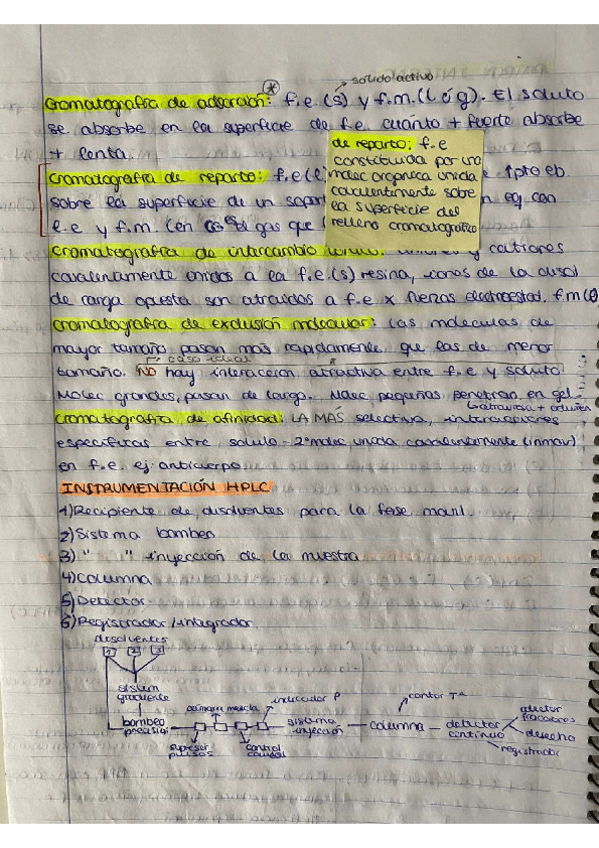 sólido activo
Cromatografía de adsorción: f.e (s) y f.m. (l ó g). El soluto
se absorbe en la superficie de f.e cuanto + fuerte absorbe
+ lenta.
de reparto: f.e
constituida por una
molec orgánica unida
covalentemente sobre
la superficie del
relleno cromatográfico
Cromatografía de reparto: f.e (l
sobre la superficie de un sopor
f.e y f.m. (en el gas que
Cromatografía de intercambio y cationes
covalentemente unidos a la f.e. (s) resina, iones de la disol
de carga opuesta son atraídos a f.e x fuerzas electroestat. f.m (l)
Cromatografía de exclusión molecular: Las moleculas de
mayor tamaño pasan más rapidamente que las de menor
caso ideal
tamaño. NO hay interacción atractiva entre f.e y soluto
Molec grandes, pasan de largo. Molec pequeñas penetran en gel
Cromatografía de afinidad: LA MÁS selectiva, interacciones
específicas entre soluto - 2ª molec unida covalentemente (inmov)
en f.e. ej: anticuerpo
INSTRUMENTACIÓN HPLC
1) Recipiente de disolventes para la fase movil.
2) Sistema bombeo
3) " " inyección de la muestra
4) Columna
5) Detector
6) Registrador / integrador
disolventes
1 2 3
sistem
gradiente
cámara mezcla
indicador P
control Tª
bombeo
precisión
supresor
pulsos
control
caudal
sistema
inyección
columna
detector
continuo
colector
fracciones
desecho
registrador